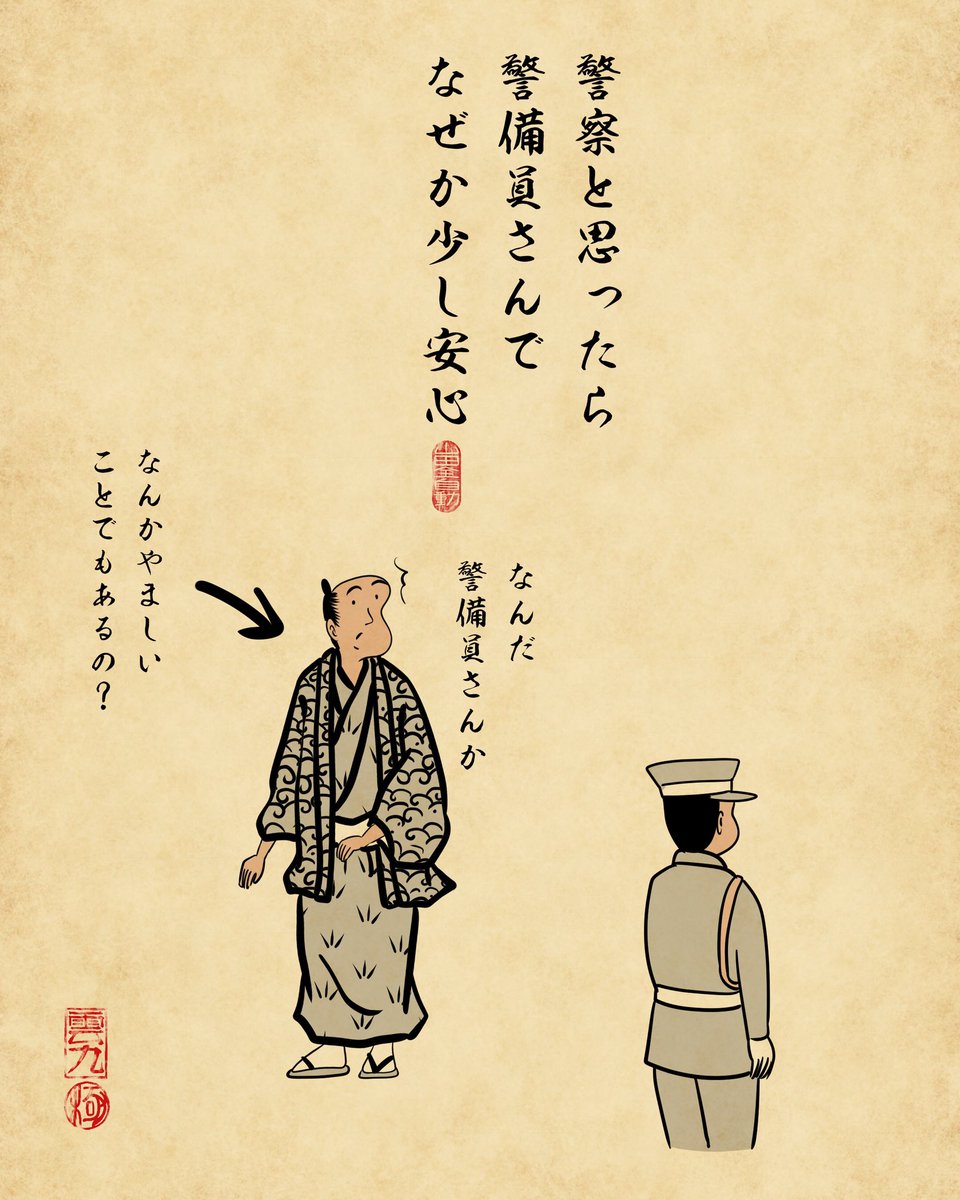 警察と思ったら
警備員さんで
なぜか少し安心
なんだ
警備員さんか
なんかやましい
ことでもあるの？